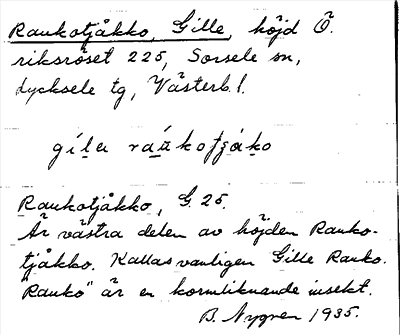 Raukotjåkko, Gille, höjd Ö.
riksröset 225, Sorsele sn,
Lycksele tg, Västerb.l.
gílẹ raukotjåko
Raukotjåkko, G. 25.
Är västra delen av höjden Rauko-
tjåkko. Kallas vanligen Gille Rauko.
"Rauko" är en kormliknande insekt.
B. Nygren 1935.